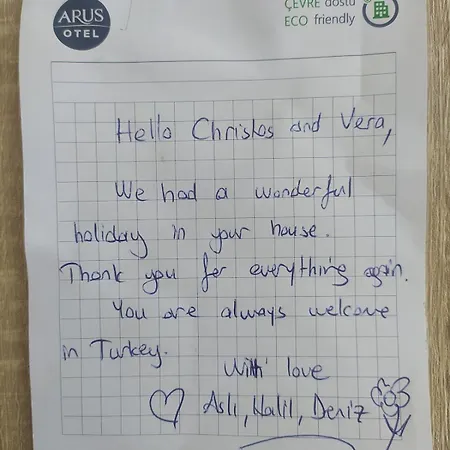 ARUS
OTEL
ÇEVRE dostu
ECO friendly
Hello Christos and Vera,
We had a wonderful
holiday in your house.
Thank you for everything again.
You are always welcome
in Turkey.
With love
Aslı, Halil, Deniz